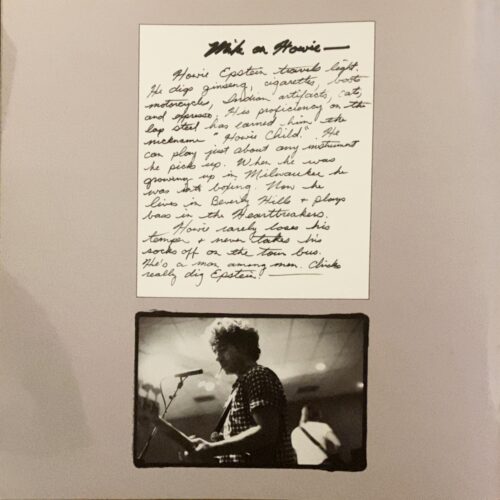 Mike on Howie —
Howie Epstein travels light.
He digs ginseng, cigarettes, boots
motorcycles, Indian artifacts, cats,
and espresso. His proficiency on the
lap steel has earned him the
nickname "Howie Child." He
can play just about any instrument
he picks up. When he was
growing up in Milwaukee he
was into boxing. Now he
lives in Beverly Hills + plays
bass in the Heartbreakers.
Howie rarely loses his
temper + never takes his
socks off on the tour bus.
He's a man among men. Chicks
really dig Epstein!